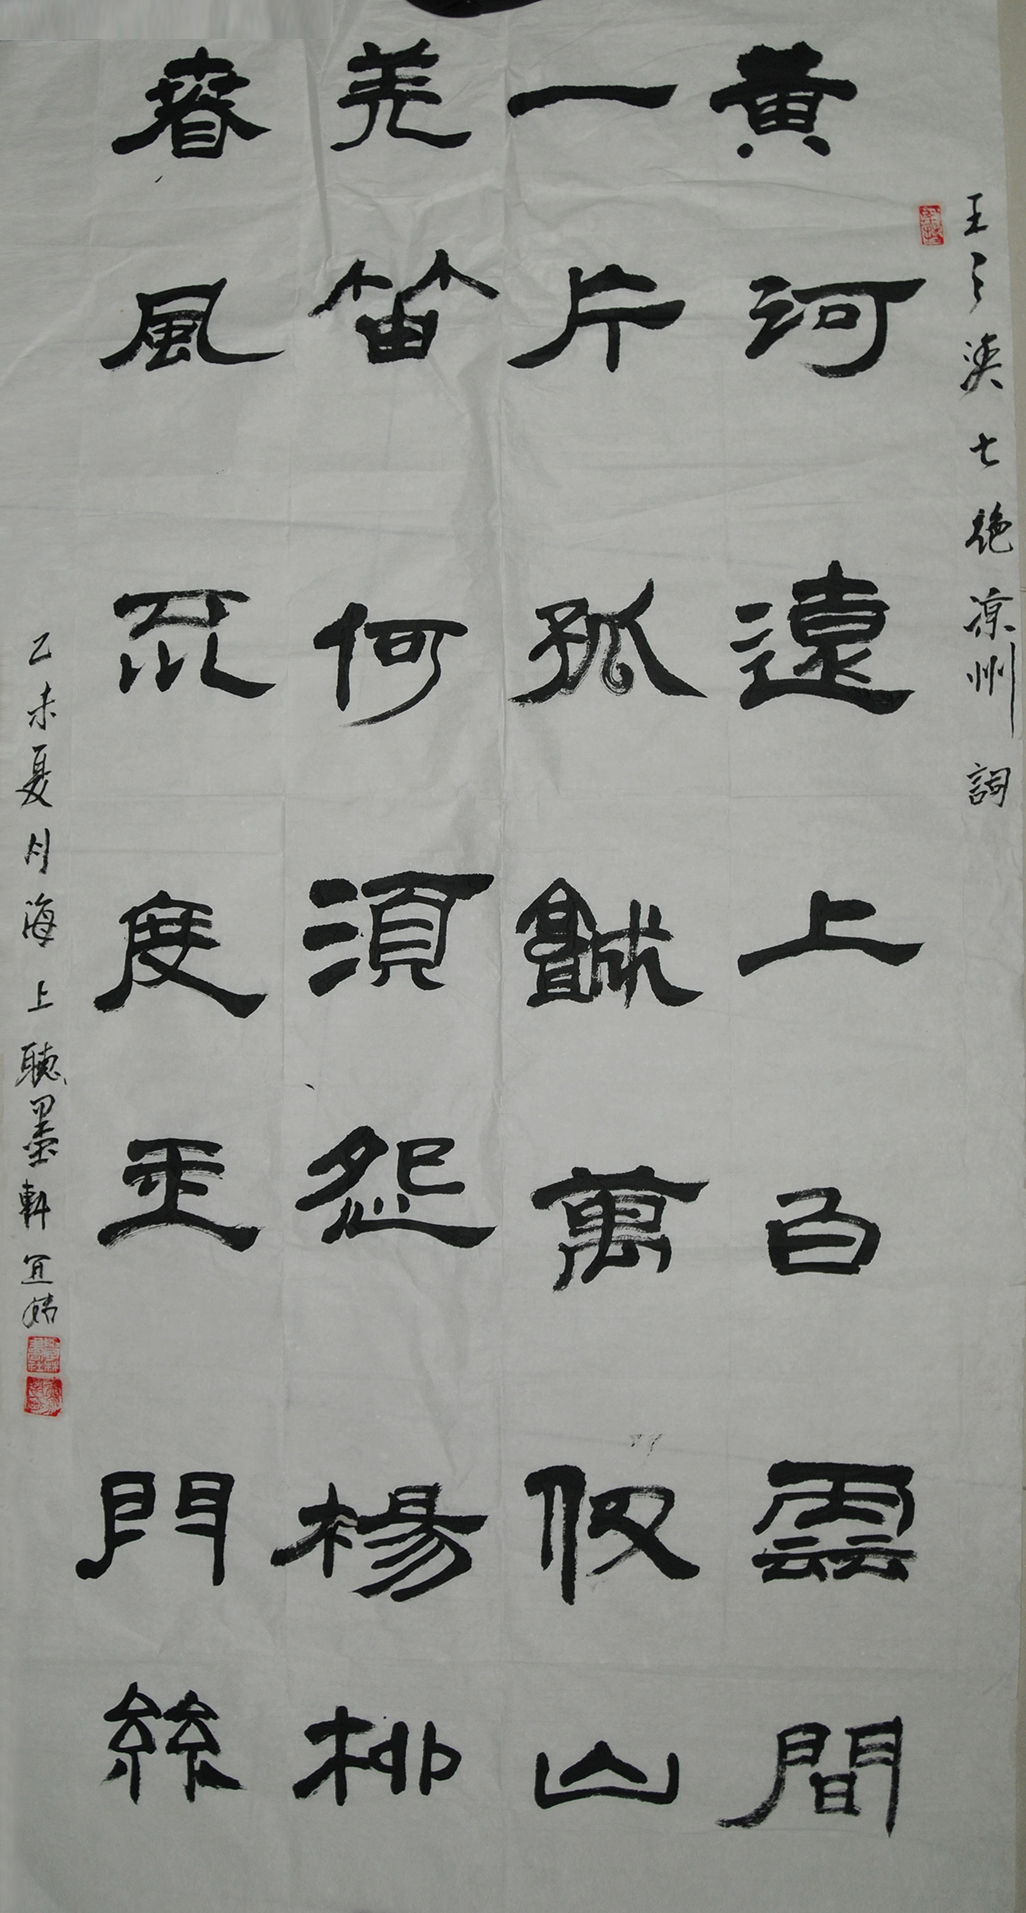 王之渙七絶凉州詞
黄河遠上白雲間
一片孤城萬仞山
羌笛何須怨楊柳
春風不度玉門絲
乙未夏月海上聽墨軒宜